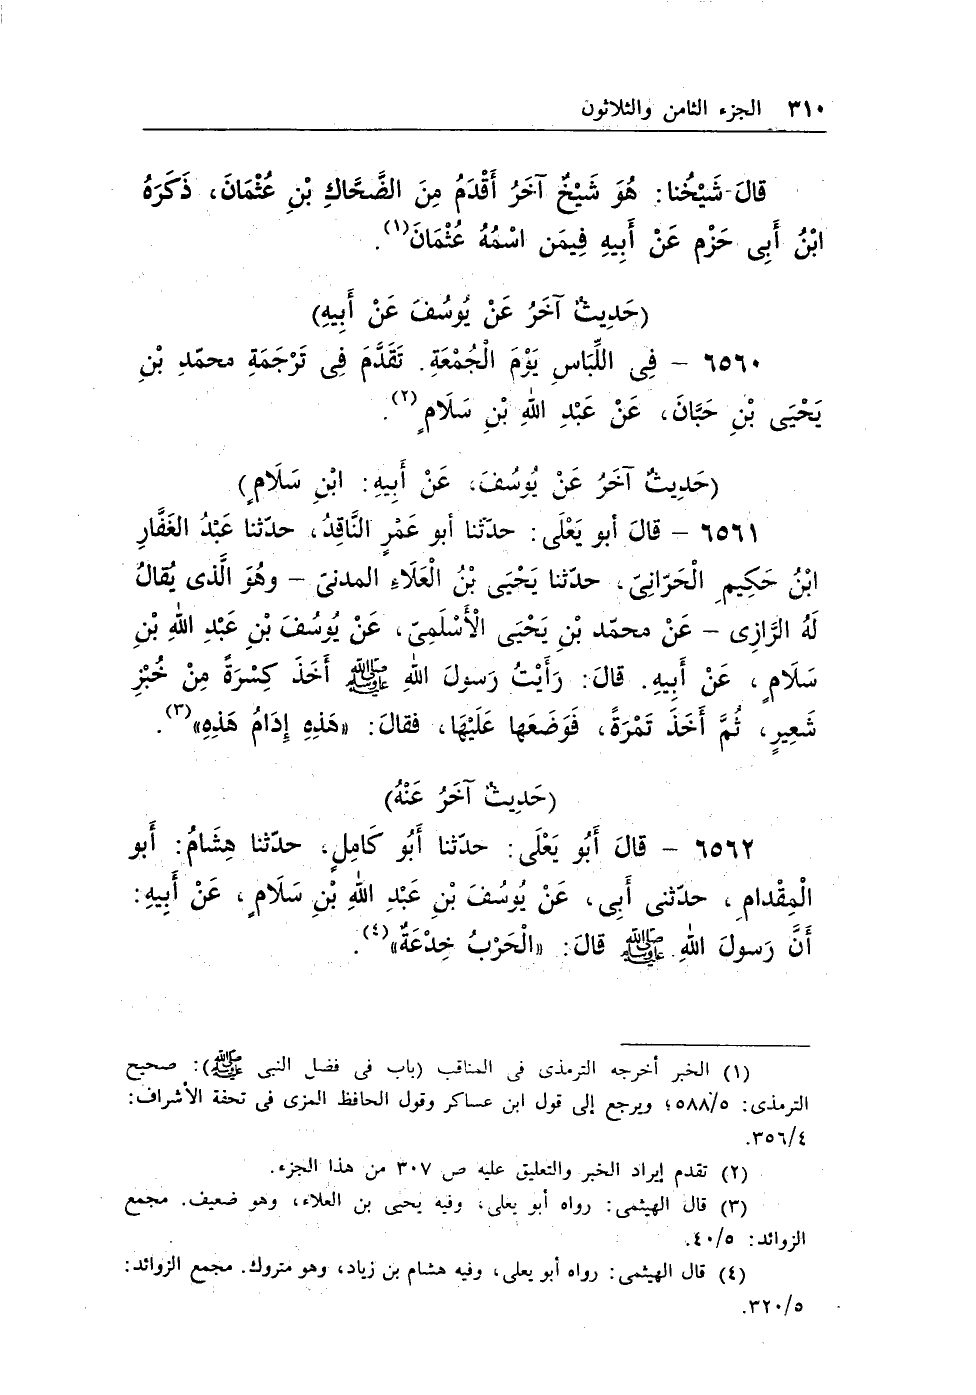 ٣١٠ الجزء الثامن والثلاثون
قالَ شَيْخُنا: هُوَ شَيْخٌ آخَرُ أَقْدَمُ مِنَ الضَّحَّاكِ بْنِ عُثْمَانَ، ذَكَرَهُ
ابْنُ أَبِى حَزْم عَنْ أَبِيهِ فِيمَن اسْمُهُ عُثْمَانَ(١).
(حَدِيثٌ آخَرُ عَنْ يُوسُفَ عَنْ أَبِيهِ)
٦٥٦٠ – فِى اللِّبَاسِ يَوْمَ الْجُمْعَةِ. تَقَدَّمَ فِى تَرْجَمَةِ محمّدِ بْنِ
يَحْيَى بْنِ حَبَّانَ، عَنْ عَبْدِ اللهِ بْنِ سَلَامٍ(٢).
(حَدِيثٌ آخَرُ عَنْ يُوسُفَ، عَنْ أَبِيهِ: ابْنِ سَلَامٍ)
٦٥٦١ – قالَ أبو يَعْلَى: حدّثنا أبو عَمْرٍ النَّاقِدُ، حدّثنا عَبْدُ الغَفَّارِ
ابْنُ حَكِيمِ الْحَرّانِىّ، حدّثنا يَحْيَى بْنُ الْعَلَاءِ المدنىّ – وهُوَ الَّذى يُقالُ
لَهُ الرَّازِى – عَنْ محمّد بْنِ يَحْيَى الْأَسْلَمِىّ، عَنْ يُوسُفَ بْنِ عَبْدِ اللهِ بْنِ
سَلَامٍ، عَنْ أَبِيهِ. قالَ: رَأَيْتُ رَسولَ اللهِ ﷺ أَخَذَ كِسْرَةً مِنْ خُبْزِ
شَعِيرٍ، ثُمَّ أَخَذَ تَمْرَةً، فَوَضَعَها عَلَيْهَا، فقالَ: «هَذِهِ إِدَامُ هَذِهِ»(٣).
(حَدِيثٌ آخَرُ عَنْهُ)
٦٥٦٢ – قالَ أَبُو يَعْلَى: حدّثنا أَبُو كَامِلٍ، حدّثنا هِشَامُ: أَبو
الْمِقْدامِ، حدّثنى أَبِى، عَنْ يُوسُفَ بْنِ عَبْدِ اللهِ بْنِ سَلَامٍ، عَنْ أَبِيهِ:
أَنَّ رَسولَ اللهِ ﷺ قالَ: «الْحَرْبُ خِدْعَةٌ»(٤).
(١) الخبر أخرجه الترمذى فى المناقب (باب فى فضل النبى ﷺ): صحيح
الترمذى: ٥٨٨/٥؛ ويرجع إلى قول ابن عساكر وقول الحافظ المزى فى تحفة الأشراف:
٣٥٦/٤.
(٢) تقدم إيراد الخبر والتعليق عليه ص ٣٠٧ من هذا الجزء.
(٣) قال الهيثمى: رواه أبو يعلى، وفيه يحيى بن العلاء، وهو ضعيف. مجمع
الزوائد: ٤٠/٥.
(٤) قال الهيثمى: رواه أبو يعلى، وفيه هشام بن زياد، وهو متروك. مجمع الزوائد:
٣٢٠/٥.